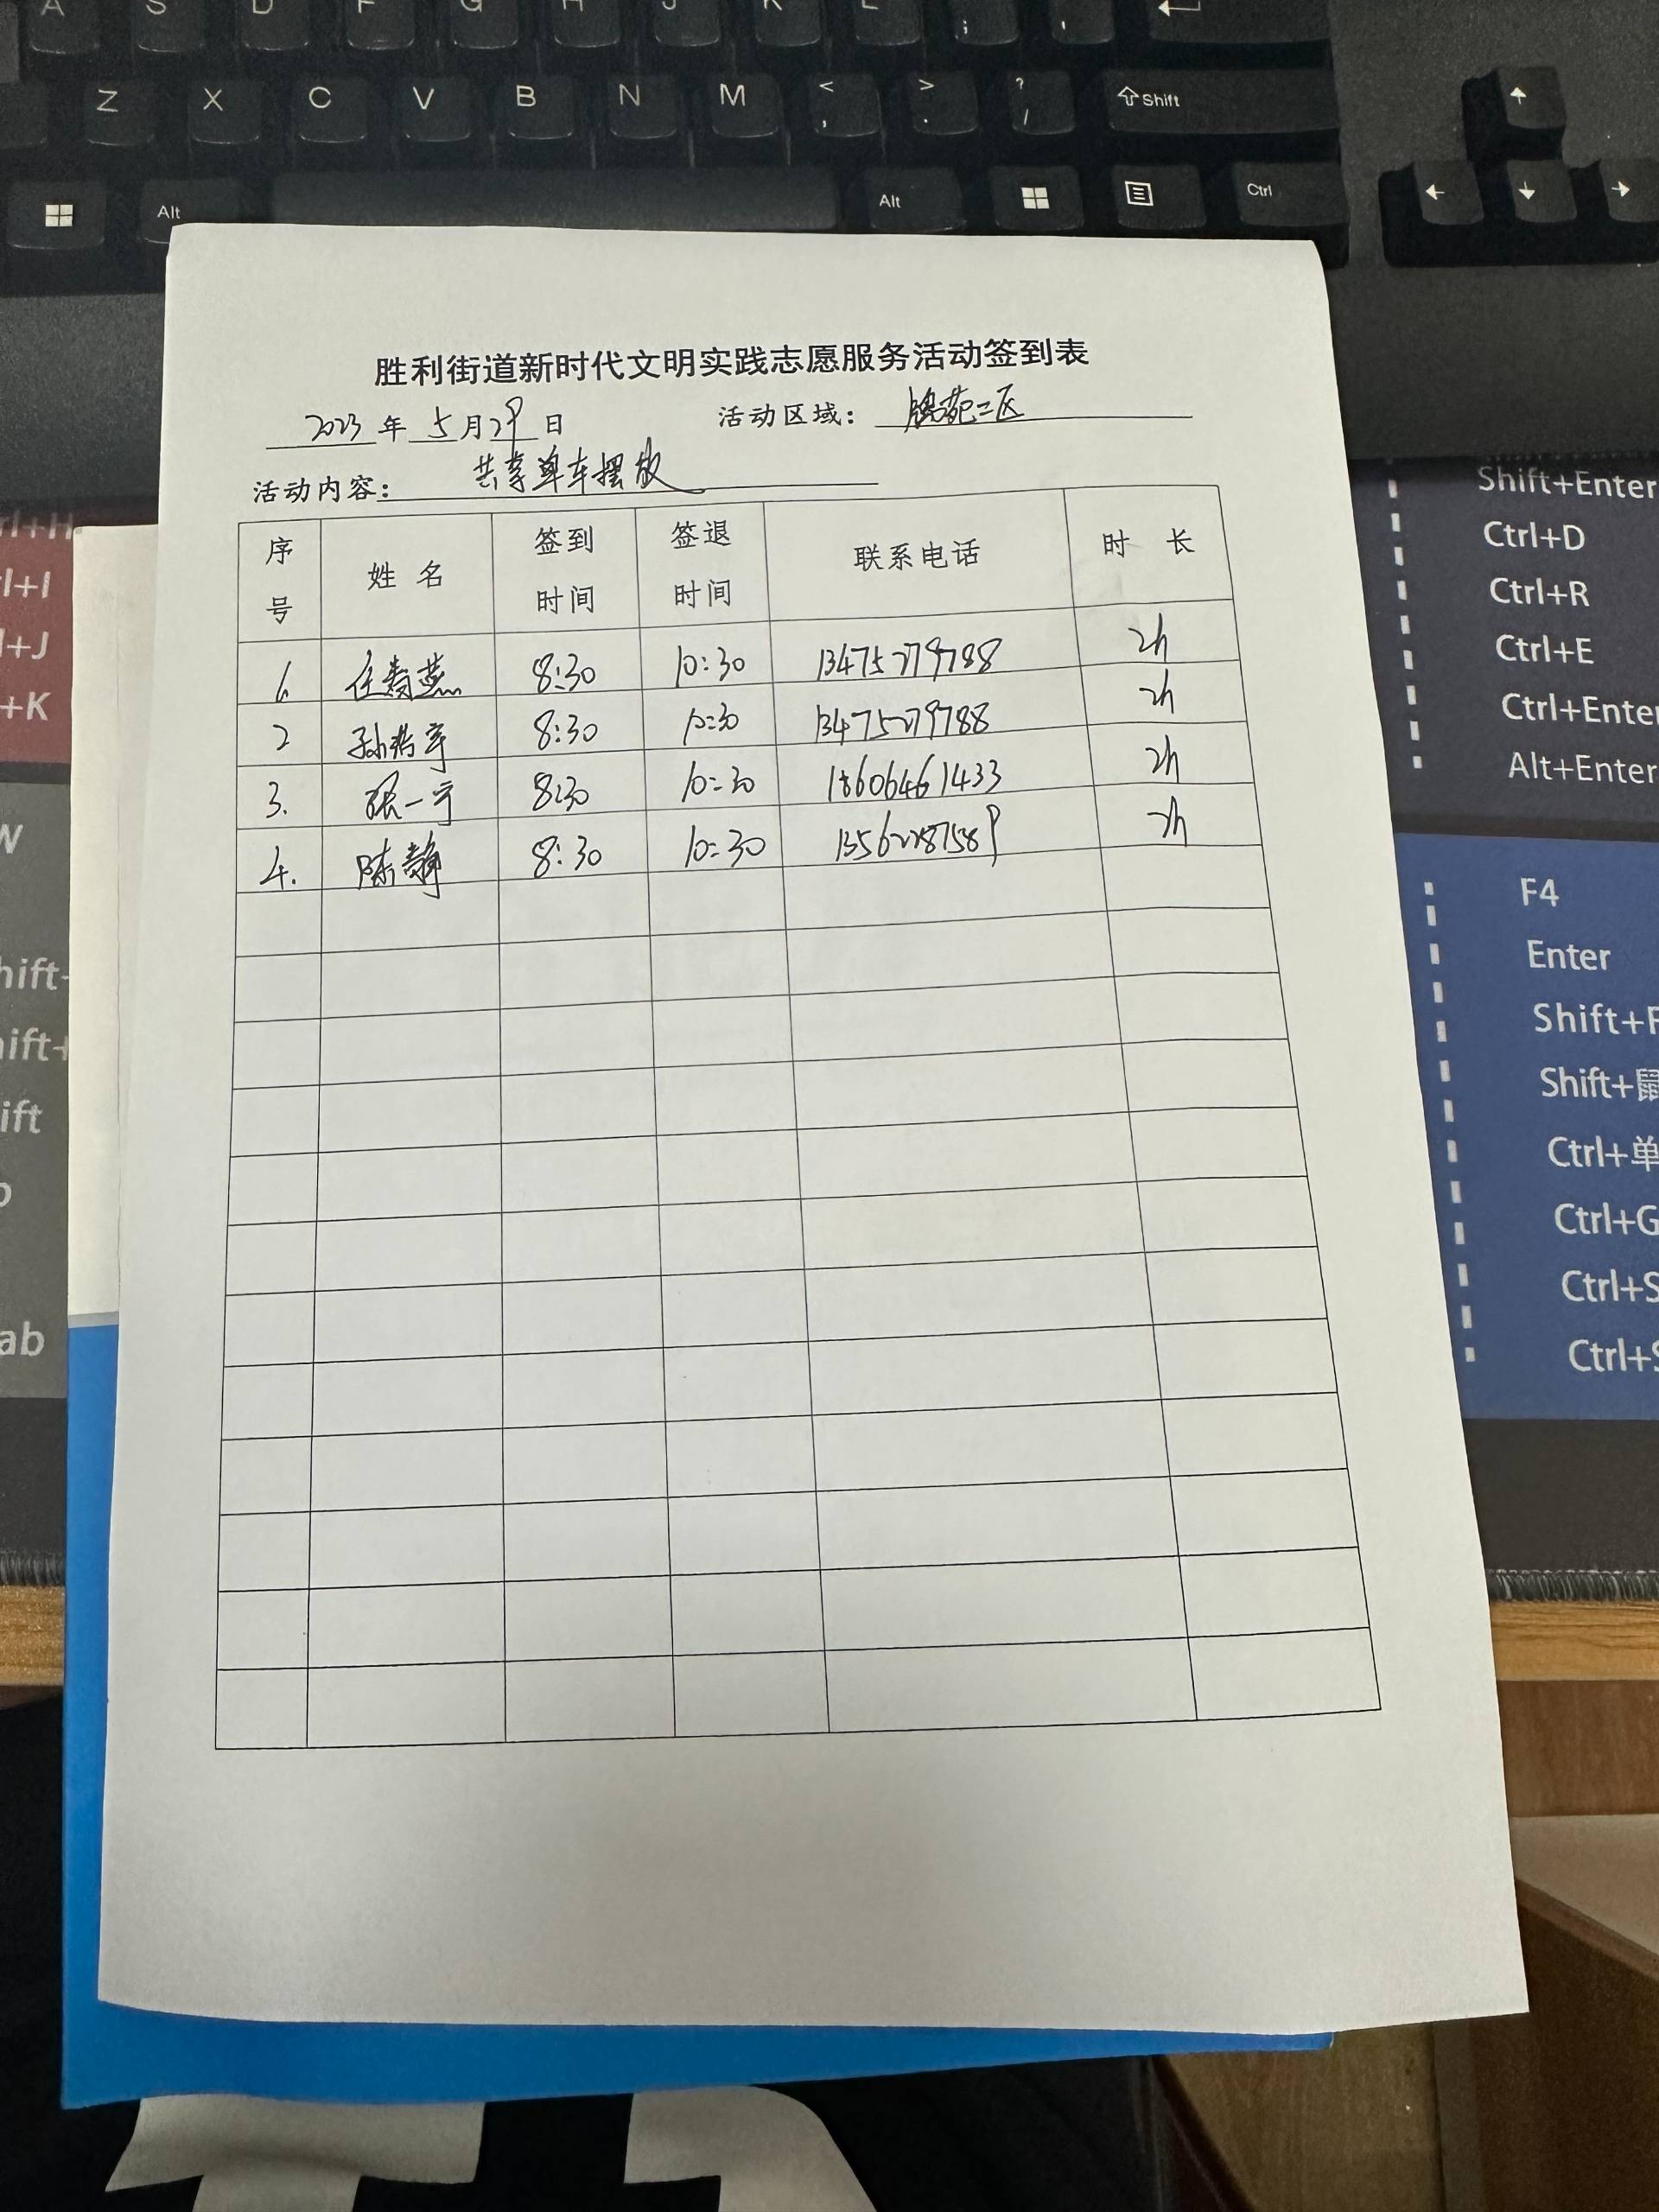 A S D F G H J K L ;
Z X C V B N M < , > . ? / Shift
Alt Alt Ctrl
胜利街道新时代文明实践志愿服务活动签到表
2023 年 5 月 29 日 活动区域: 锦苑二区
活动内容: 共享单车摆放
序号 姓 名 签到时间 签退时间 联系电话 时 长
1. 任春燕 8:30 10:30 13475279788 2h
2 孙 8:30 10:30 13475279788 2h
3. 张一宁 8:30 10:30 18606461433 2h
4. 陈静 8:30 10:30 13562287589 2h
Shift+Enter
Ctrl+D
Ctrl+R
Ctrl+E
Ctrl+Enter
Alt+Enter
F4
Enter
Shift+F
Shift+鼠
Ctrl+单
Ctrl+G
Ctrl+S
Ctrl+S
rl+H
l+I
+J
+K
W
hift+
ift+
ift
ab